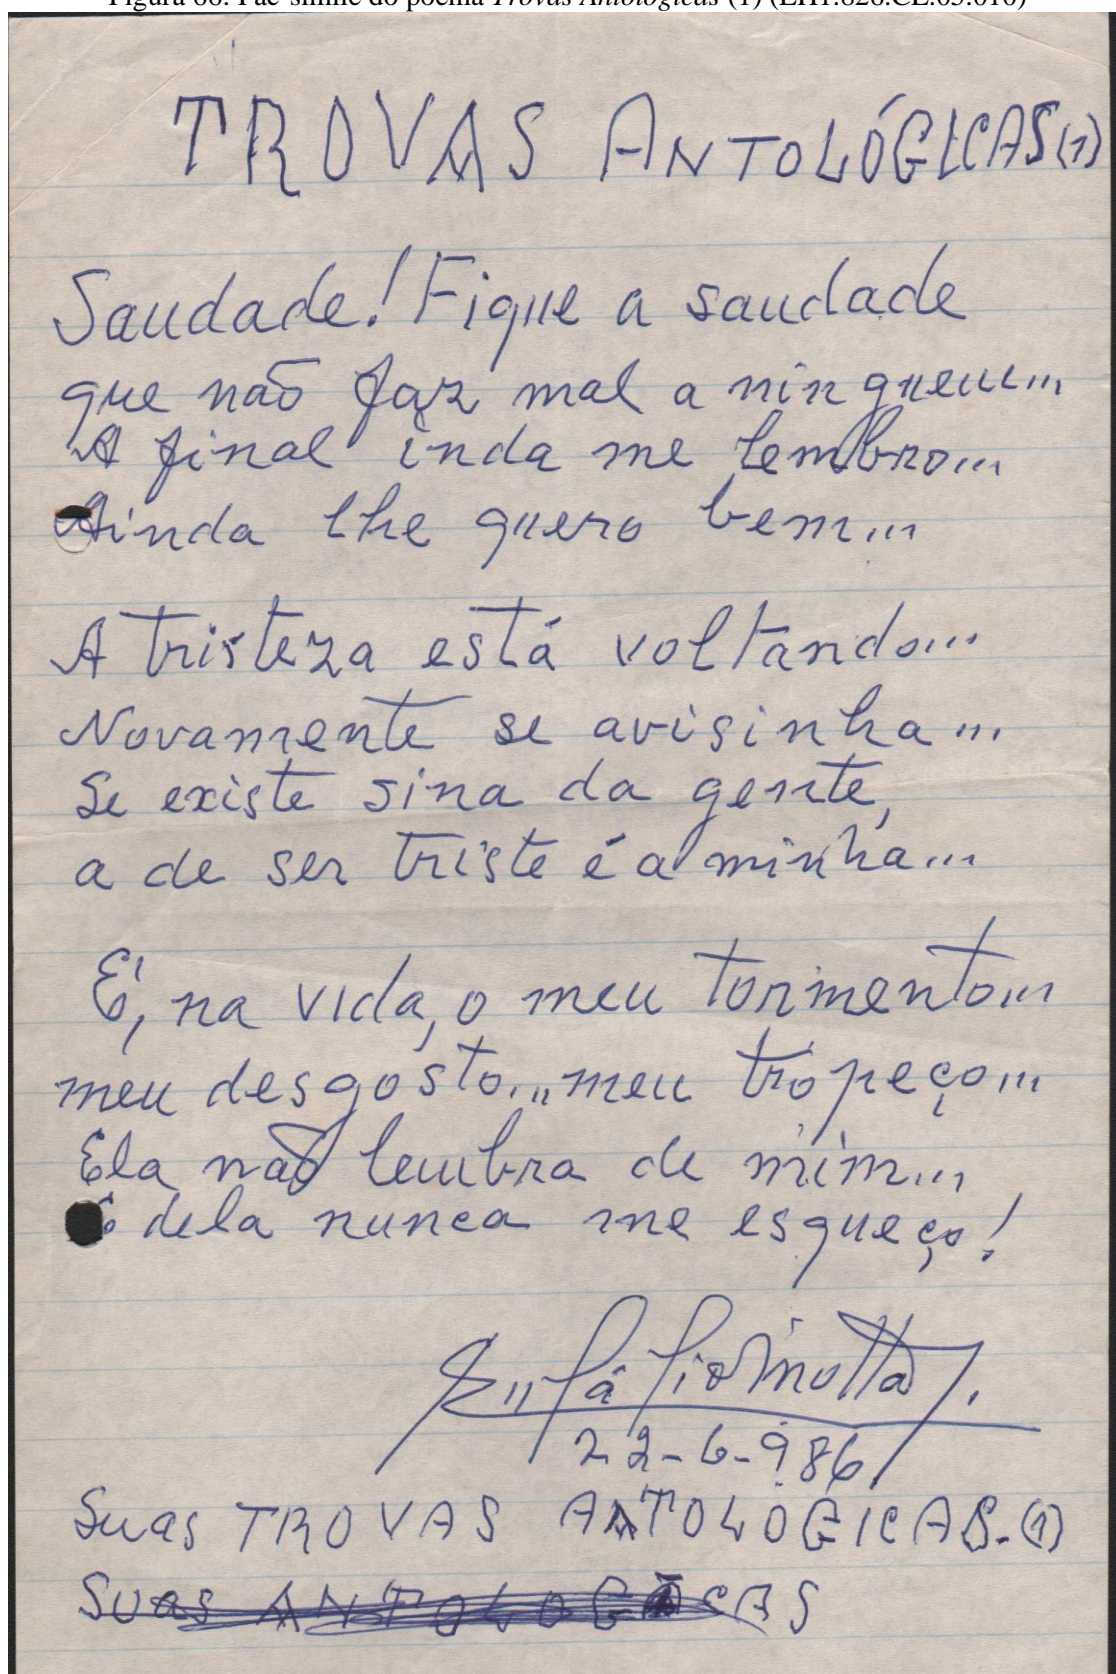 Figura 66: Fac-símile do poema Trovas Antológicas (1)
TROVAS ANTOLÓGICAS (1)
Saudade! Fique a saudade
que não faz mal a ninguem...
A final inda me lembro...
Ainda lhe quero bem...
A tristeza está voltando...
Novamente se avisinha...
Se existe sina da gente,
a de ser triste é a minha...
É, na vida, o meu tormento...
meu desgosto... meu tropeço...
Ela não lembra de mim...
E dela nunca me esqueço!
Eulálio Motta
22-6-986
Suas TROVAS ANTOLOGICAS. (1)
Suas ANTOLOGICAS